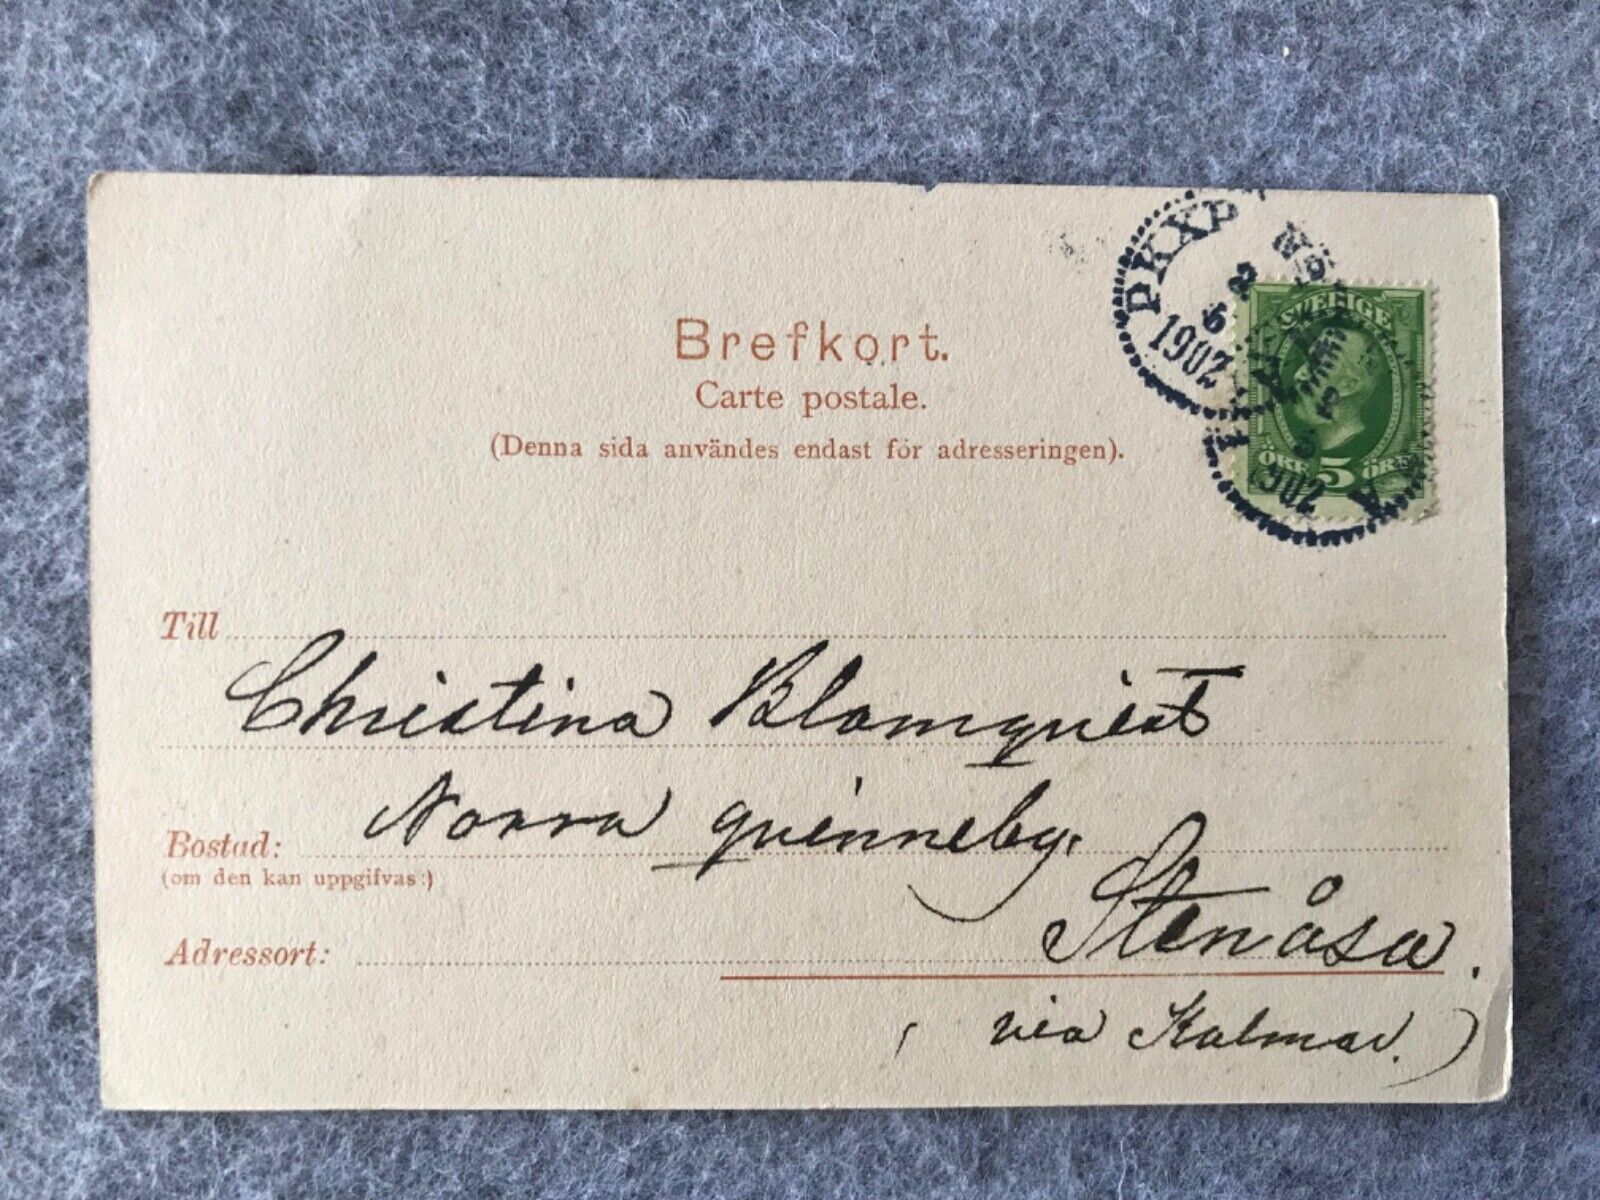 Brefkort.
Carte postale.
(Denna sida användes endast för adresseringen).
PKXP
2
6
1902
SVERIGE
ÖRE 5 ÖRE
1902
A
Till
Christina Blomquist
Norra quinneby.
Bostad:
(om den kan uppgifvas:)
Stenåsa.
Adressort:
(via Kalmar.)